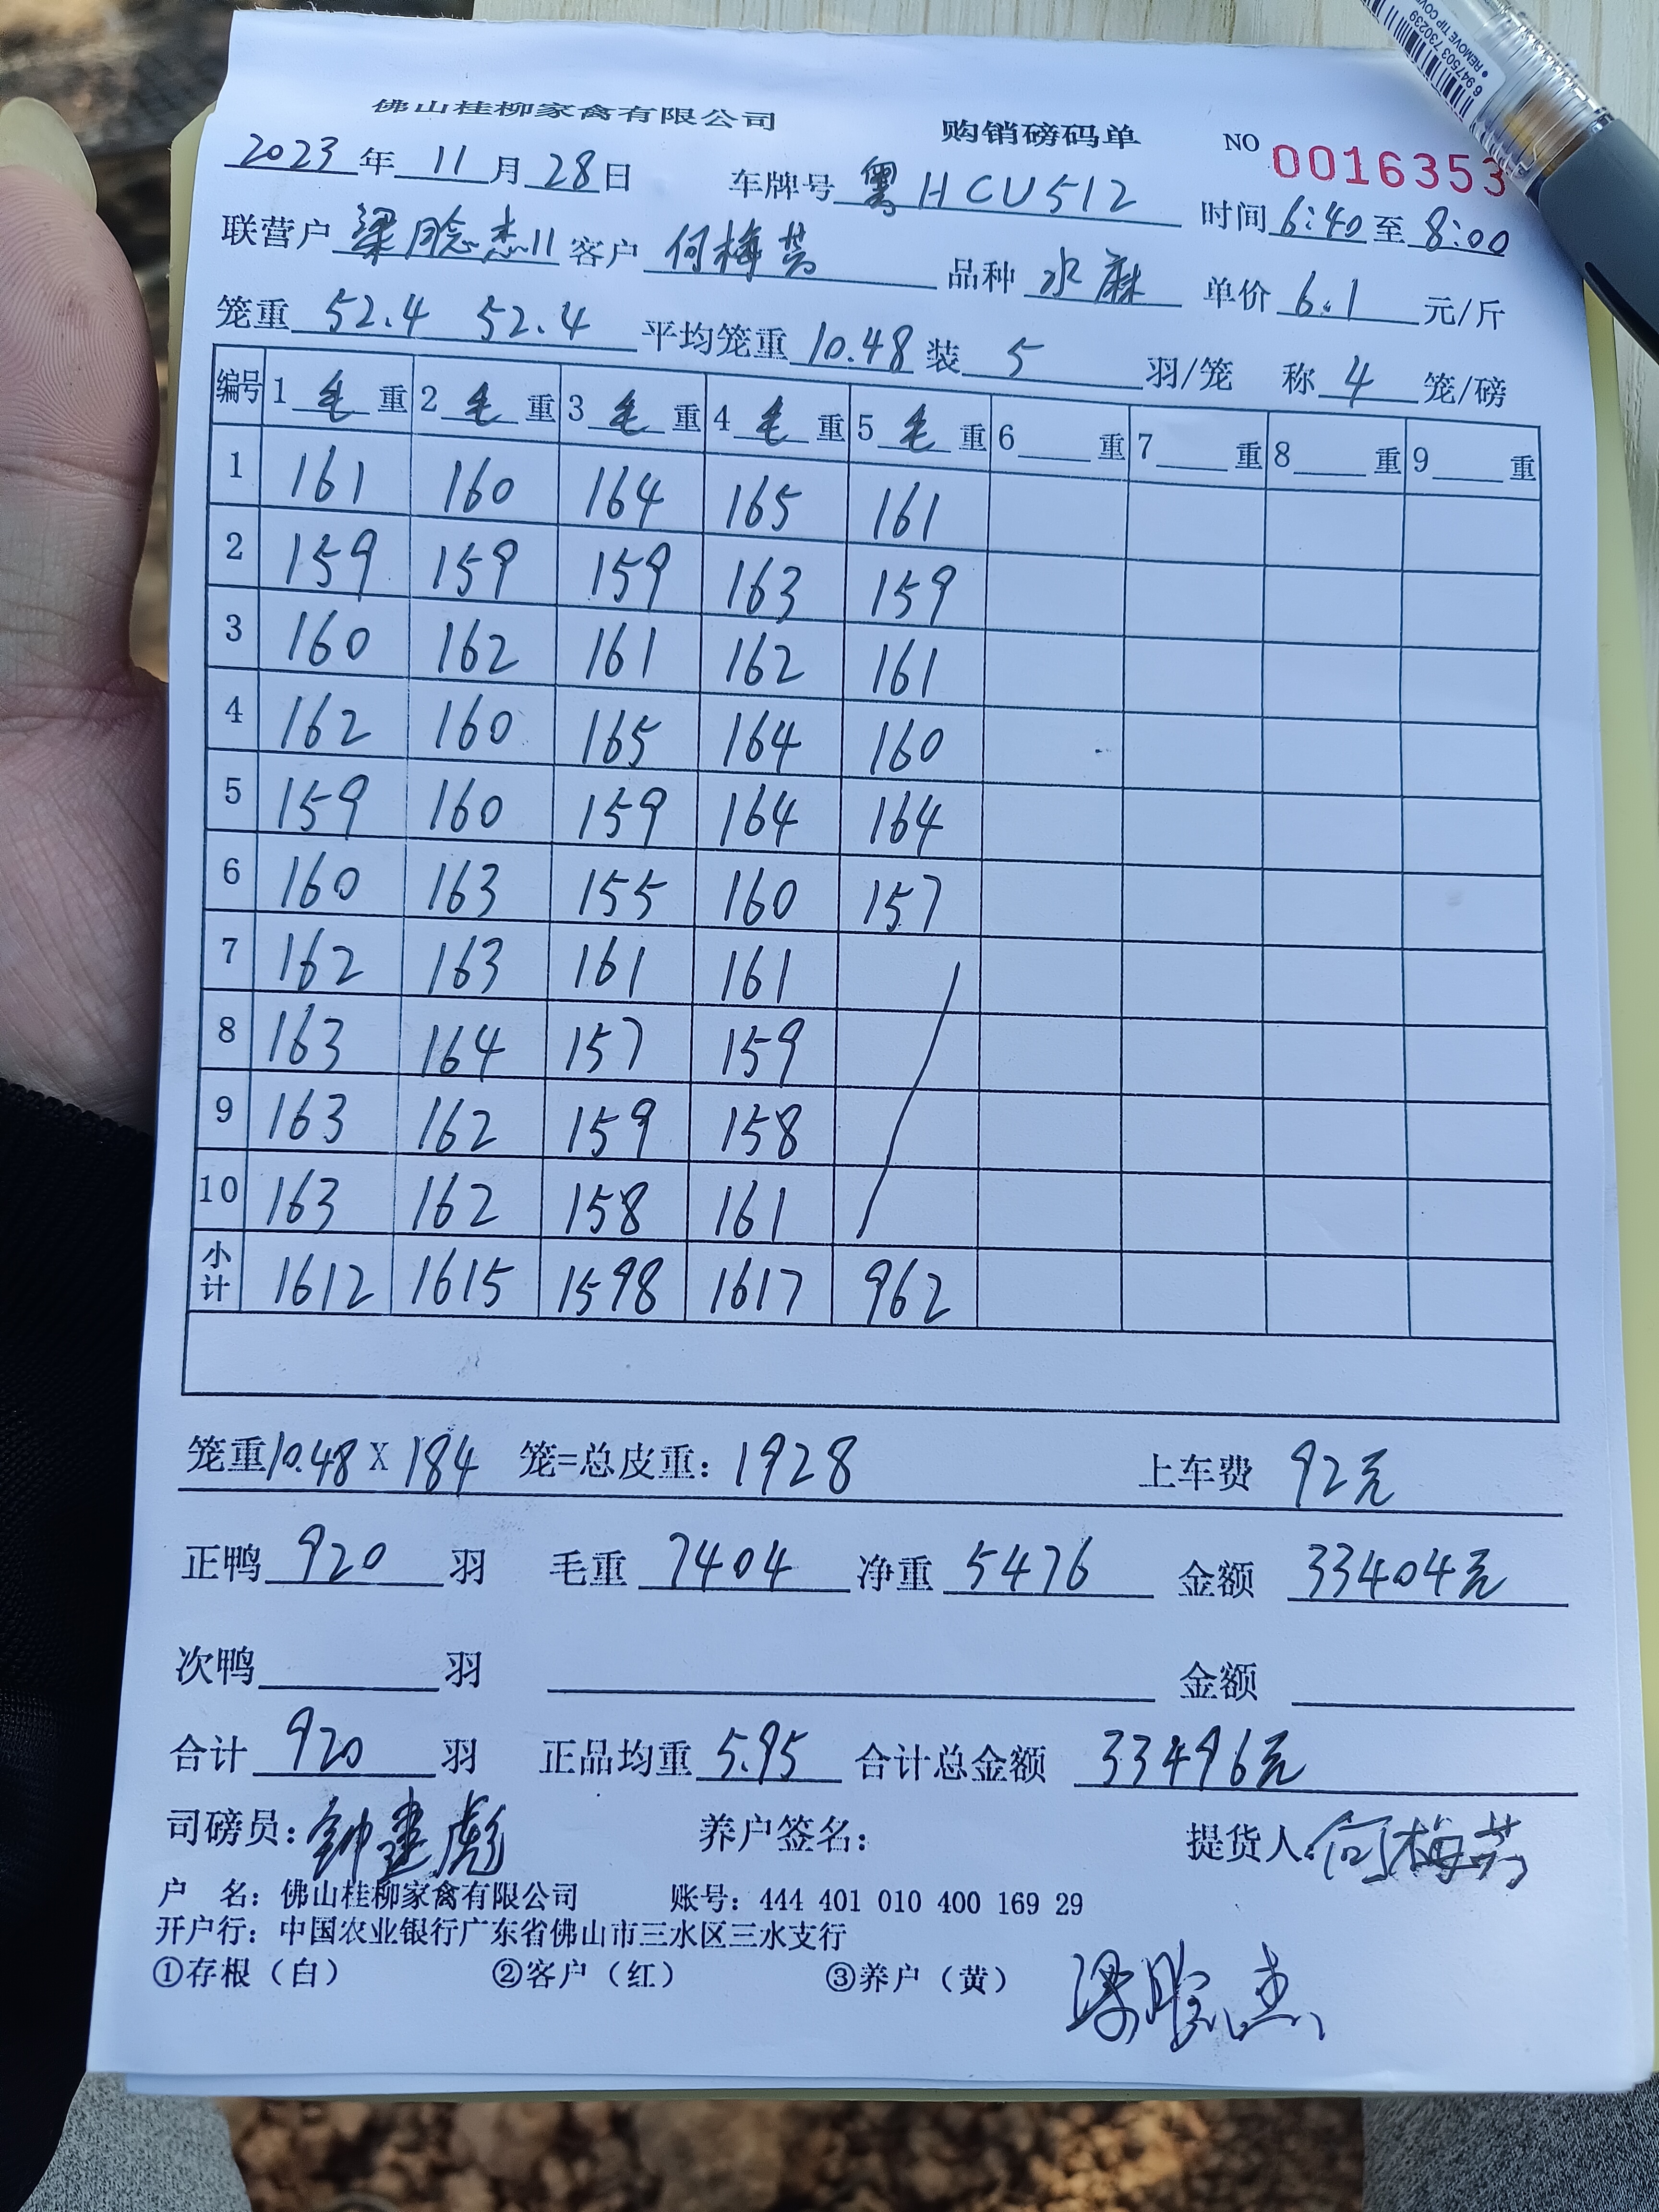 佛山桂柳家禽有限公司 购销磅码单 NO 0016353
2023年11月28日 车牌号 粤HCU512 时间6:40至8:00
联营户 梁杰11 客户 何梅芳 品种 水麻 单价 6.1 元/斤
笼重 52.4 52.4 平均笼重 10.48 装 5 羽/笼 称 4 笼/磅
编号 1 毛 重 2 毛 重 3 毛 重 4 毛 重 5 毛 重 6 重 7 重 8 重 9 重
1 161 160 164 165 161
2 159 159 159 163 159
3 160 162 161 162 161
4 162 160 165 164 160
5 159 160 159 164 164
6 160 163 155 160 157
7 162 163 161 161
8 163 164 157 159
9 163 162 159 158
10 163 162 158 161
小计 1612 1615 1598 1617 962
笼重10.48 X 184 笼=总皮重: 1928 上车费 92元
正鸭 920 羽 毛重 7404 净重 5476 金额 33404元
次鸭 羽 金额
合计 920 羽 正品均重 5.95 合计总金额 33496元
司磅员: 钟建彪 养户签名: 提货人 何梅芳
户 名: 佛山桂柳家禽有限公司 账号: 444 401 010 400 169 29
开户行: 中国农业银行广东省佛山市三水区三水支行
①存根（白） ②客户（红） ③养户（黄） 梁杰
6947503 730239
REMOVE TIP COVE